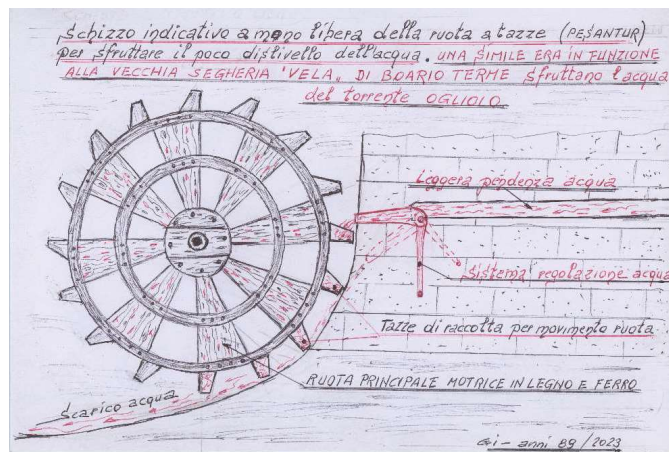 Schizzo indicativo a mano libera della ruota a tazze (PESANTUR)
per sfruttare il poco distivello dell'acqua. UNA SIMILE ERA IN FUNZIONE
ALLA VECCHIA SEGHERIA "VELA" DI BOARIO TERME sfruttano l'acqua
del torrente OGLIOLO
Leggera pendenza acqua
Sistema regolazione acqua
Tazze di raccolta per movimento ruota
RUOTA PRINCIPALE MOTRICE IN LEGNO E FERRO
Scarico acqua
Gi - anni 89 / 2023